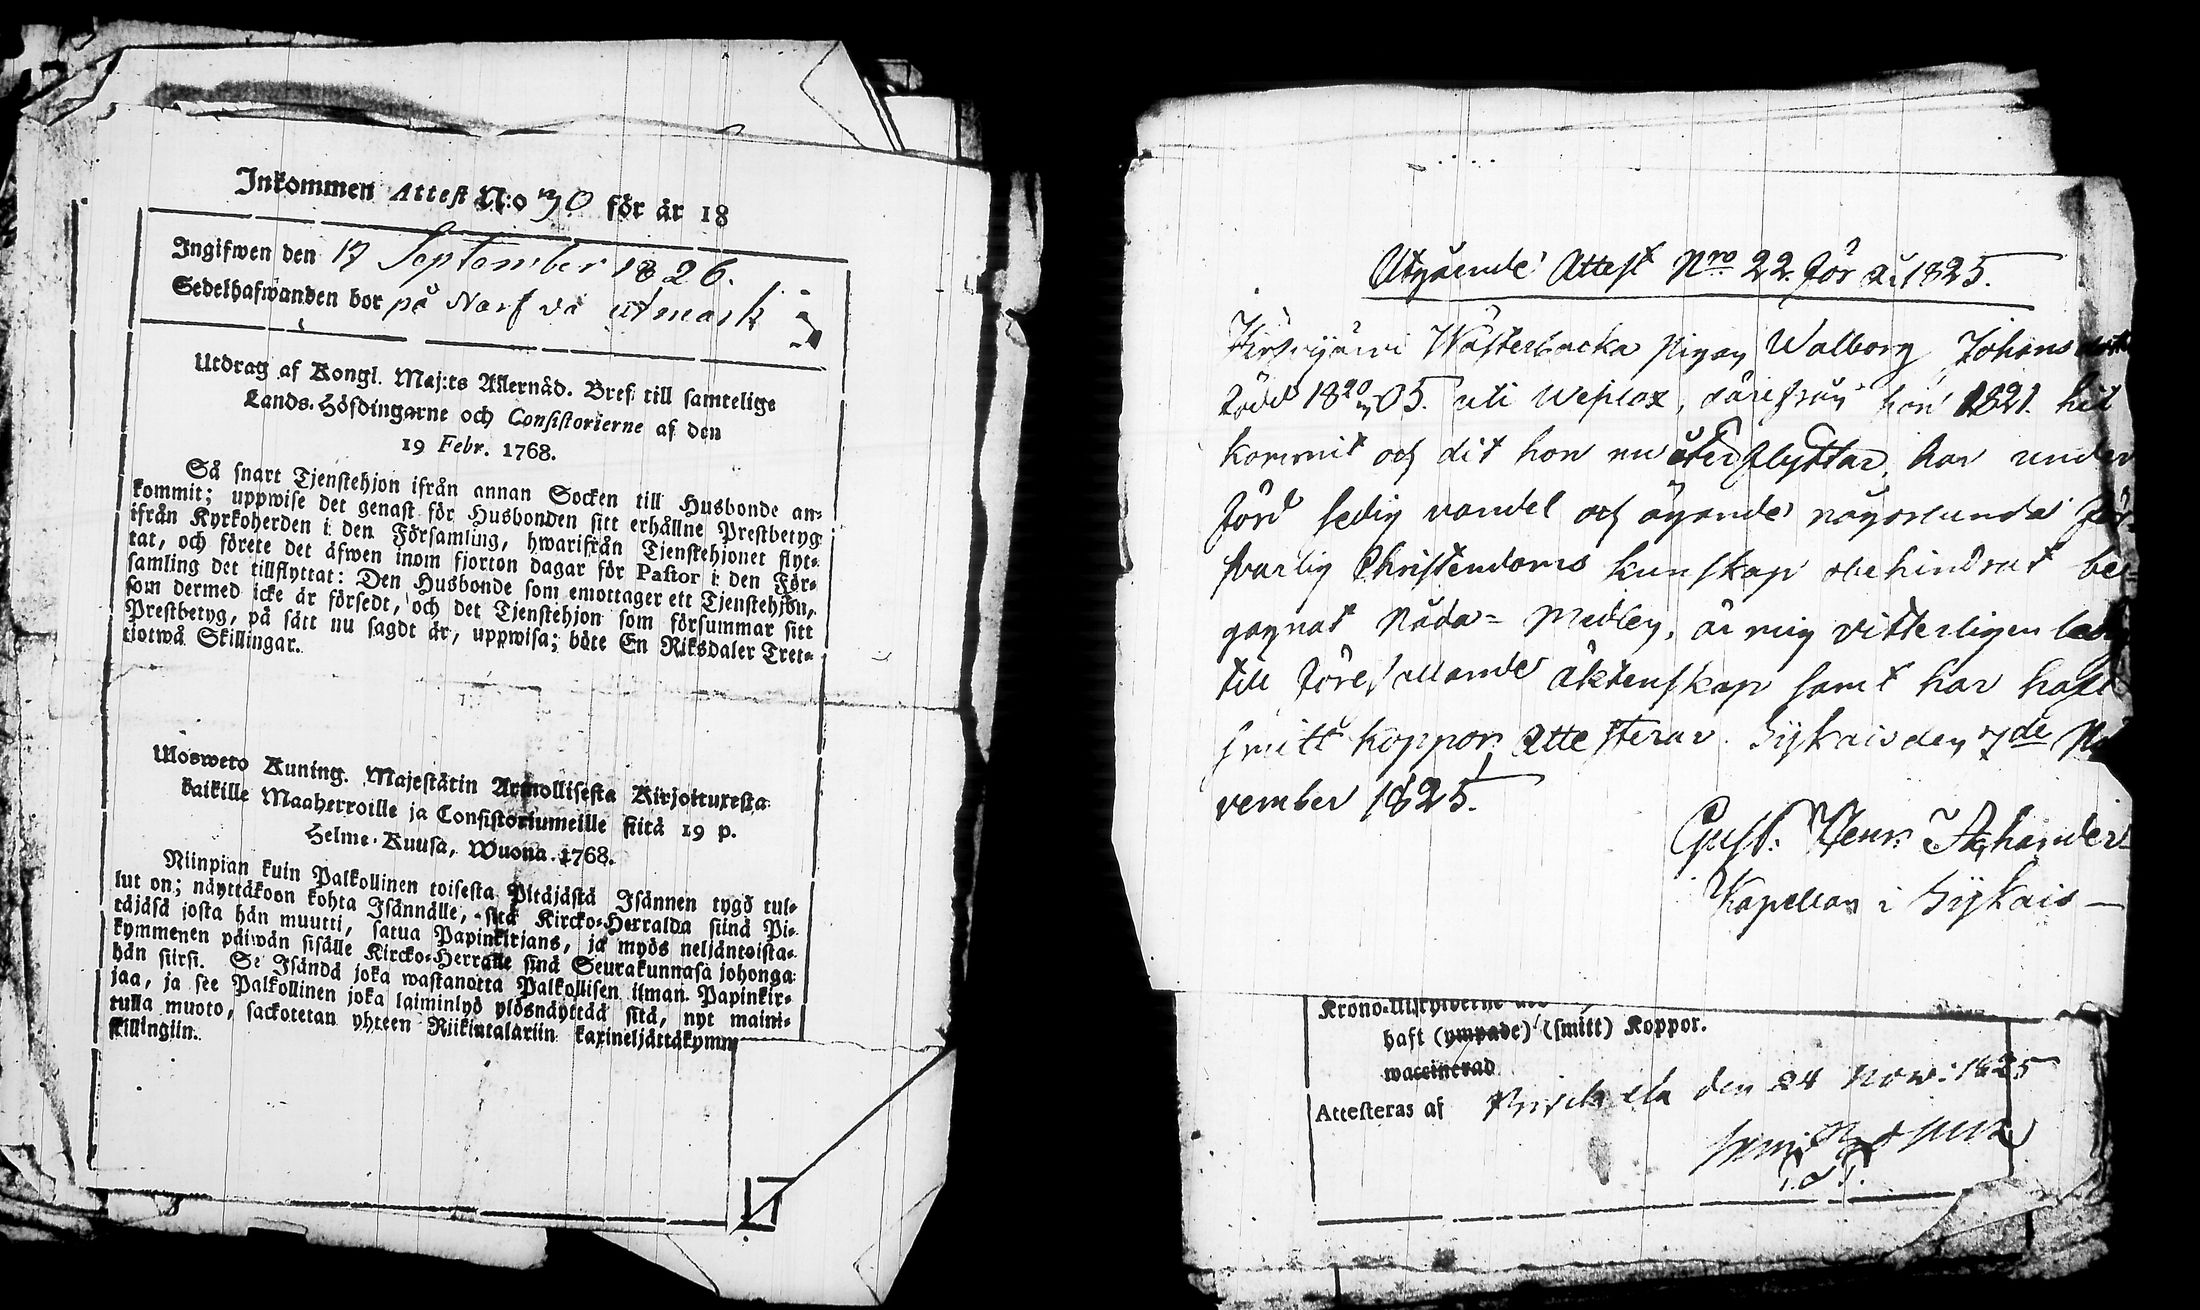 Inkommen Attest N:o 30 för år 18
Ingifwen den 17 September 1826.
Sedelhafwanden bor på Narf va utmark
Utdrag af Kongl. Maj:ts Allernåd. Bref till samtelige
Lands-Höfdingarne och Consistorierne af den
19 Febr. 1768.
Så snart Tjenstehjon ifrån annan Socken till Husbonde an-
kommit; uppwise det genast för Husbonden sitt erhållne Prestbetyg
ifrån Kyrkoherden i den Församling, hwarifrån Tjenstehjonet flyt-
tat, och förete det äfwen inom fjorton dagar för Pastor i den För-
samling det tillflyttat: Den Husbonde som emottager ett Tjenstehjon,
som dermed icke är försedt, och det Tjenstehjon som försummar sitt
Prestbetyg, på sätt nu sagdt är, uppwisa; böte En Riksdaler Tret-
tiotwå Skillingar.
Ulosweto Kuning. Majestätin Armollisesta Kirjoituxesta
kaikille Maaherroille ja Consistoriumeille siitä 19 p.
Helme-Kuusa, Wuona 1768.
Niinpian kuin Palkollinen toisesta Pitäjästä Isännen tygö tul-
lut on; näyttäköön kohta Isännälle, sitä Kircko-Herralda siinä Pi-
täjäsä josta hän muutti, satua Papinkirjans, ja myös neljäntoista-
kymmenen päiwän sisälle Kircko-Herralle siinä Seurakunnasa johonga
hän siirsi. Se Isändä joka wastanotta Palkollisen ilman Papinkir-
jaa, ja see Palkollinen joka laiminlyö ylösnäyttää sitä, nyt maini-
tulla muoto, sackotetan yhteen Riikintalariin kaxineljättäkymm
skillingiin.
Utgående Attest Nro 22. för år 1825.
Wästerbacka pigan Walborg Johans
född 18 20/7 05. uti Weplax, därifrån hon 1821. hit
kommit och dit hon nu återflyttar, har under
förd sedig vandel och ägande någorlunda för-
svarlig Christendoms kunskap obehindrat be-
gagnat Nåda-Medlen, är mig vitterligen ledig
till förefallande äktenskap samt har haft
smitt koppor, Attesterar. Sÿkais den 7de No
vember 1825.
Gust. Henr.
Kapellan i Sÿkais
haft (ympade) (smitt) Koppor.
waccinerad
Attesteras af den 24 Nov: 1825